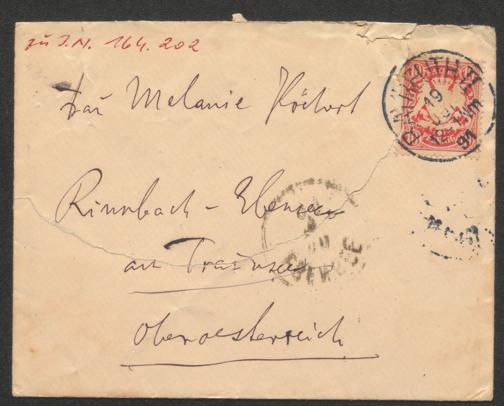 zu J.N. 164.202
Frau Melanie Köchert
BAYREUTH
19
91
Rinnbach - Ebensee
am Traunsee
EBENSEE
Oberoesterreich